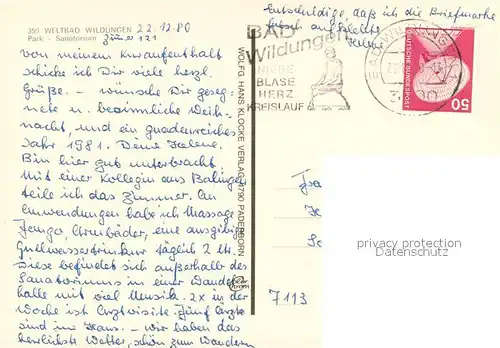 Entschuldige, daß ich die Briefmarke
falsch aufgeklebt
Helene
350 WELTBAD WILDUNGEN 22.12.80
Park - Sanatorium Zimmer 121
von meinem Kuraufenthalt
schicke ich Dir viele herzl.
Grüße. - wünsche Dir geseg-
nete u. besinnliche Weih-
nacht, und ein gnadenreiches
Jahr 1981. Deine Helene.
Bin hier gut untergebracht.
Mit einer Kollegin aus Balingen
teile ich das Zimmer. An
Anwendungen habe ich Massage
Fango, Chrombäder, eine ausgiebig
Quellwassertrinkkur täglich 2 ltr.
Diese befindet sich außerhalb des
Sanatoriums in einer Wandel-
halle mit viel Musik. 2x in der
Woche ist Arztvisite. Fünf Ärzte
sind im Haus. - wir haben das
herrlichste Wetter, schön zum Wandern
WOLFG. HANS KLOCKE VERLAG, 4790 PADERBORN
BAD
Wildungen
NIERE
BLASE
HERZ
KREISLAUF
BAD WILDUNGEN
DEUTSCHE BUNDESPOST
50
7113
privacy protection
Datenschutz